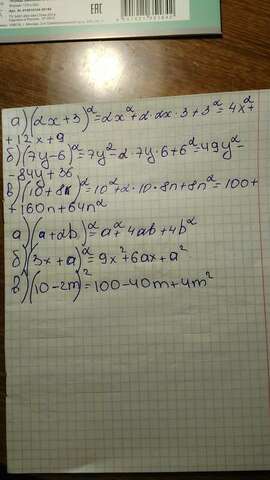 а) (2x+3)²=2x²+2·2x·3+3²=4x²+
+12x+9
б) (7y-6)²=7y²-2·7y·6+6²=49y²-
-84y+36
в) (10+8k)²=10²+2·10·8n+8n²=100+
+160n+64n²
а) (a+2b)²=a²+4ab+4b²
б) (3x+a)²=9x²+6ax+a²
в) (10-2m)²=100-40m+4m²